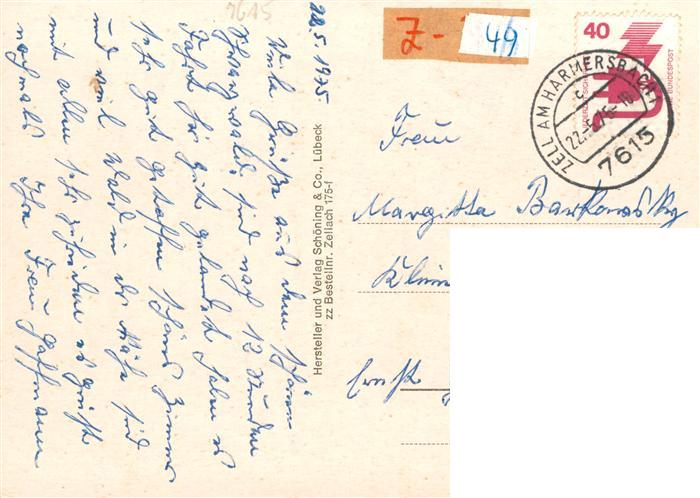 7615
22.5.1975.
Viele Grüße aus dem schönen
Schwarzwald, sind nach 12 Stunden
Fahrt sehr gut gelandet haben es
sehr gut getroffen schönes Zimmer
und viel Wald in der Nähe sind
mit allem sehr zufrieden es grüßt
nochmals Ihre Frau
Hersteller und Verlag Schöning & Co., Lübeck
zz Bestellnr. Zellach 175-f
Z-
49
40
DEUTSCHE BUNDESPOST
ZELL AM HARMERSBACH
c
22.-5.75-18
7615
Frau
Margitta Barkowsky
Ernst